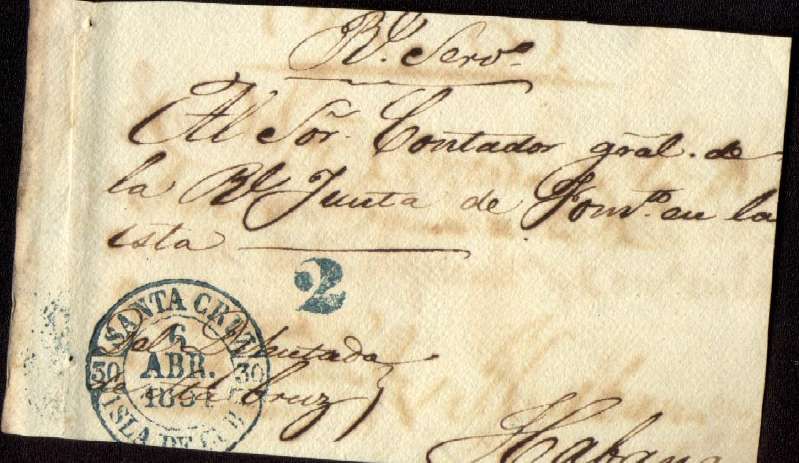 Rl. Servo.
Al Sõr. Contador gral. de
la Rl. Junta de Fomto. en la
ista
2
SANTA CRUZ
6
30 ABR. 30
ISLA DE CUB
De la Diputada
de Sta Cruz
Habana